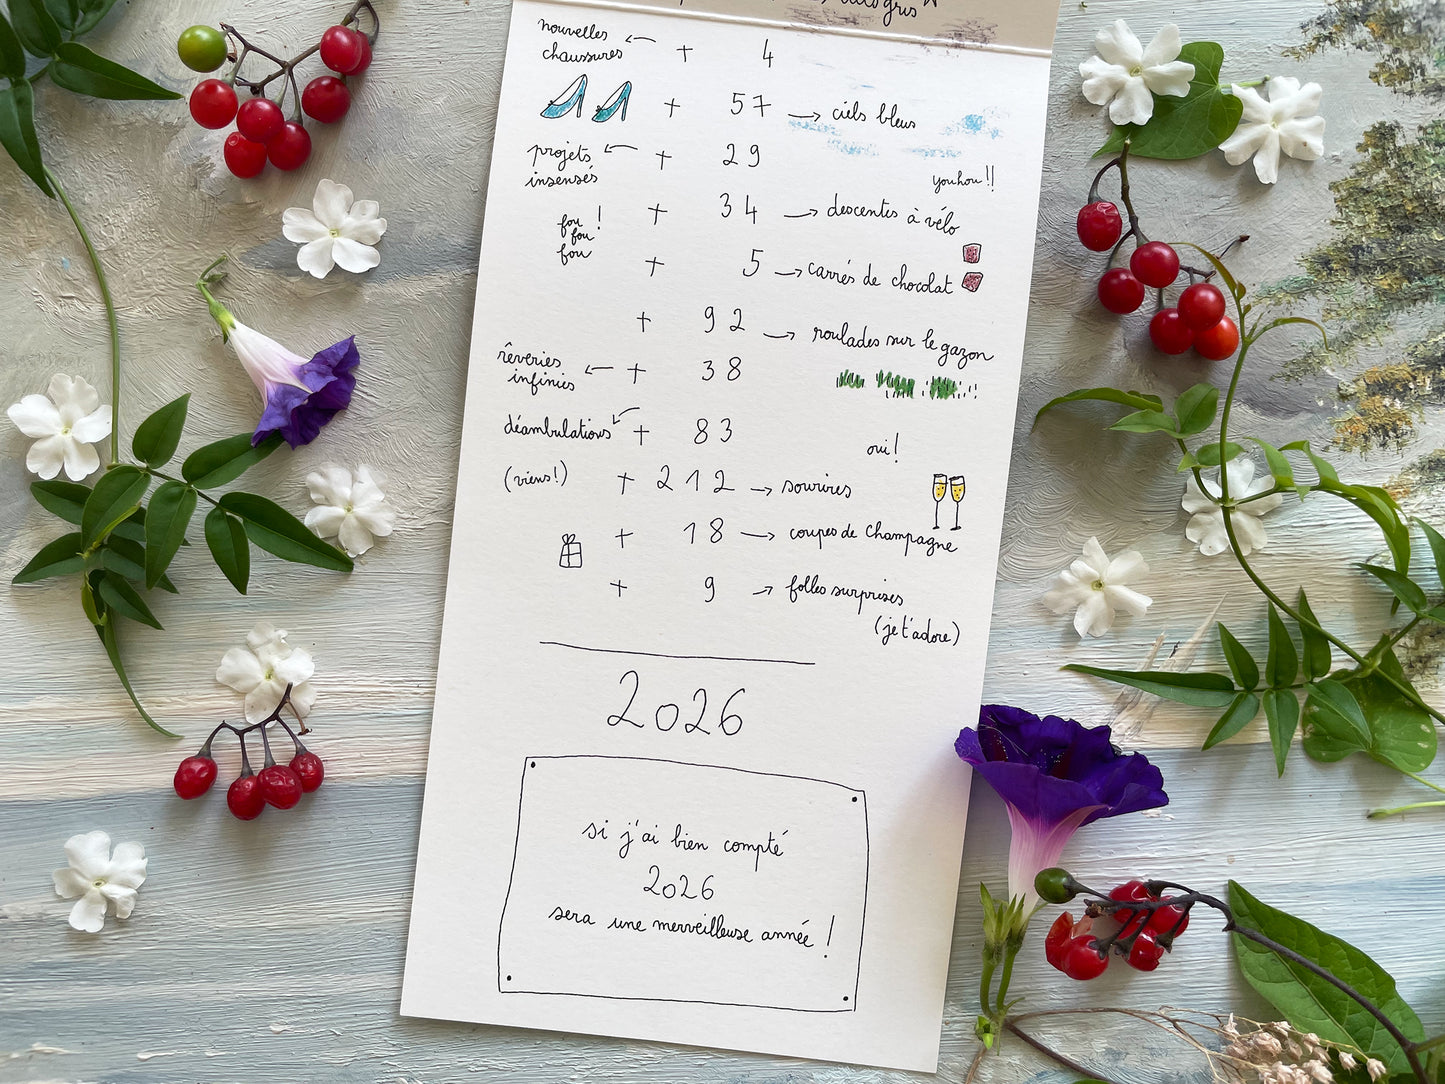 gris
nouvelles
chaussures ← + 4
+ 57 → ciels bleus
projets ← + 29
insensés
youhou !!
fou !
fou
fou
+ 34 → descentes à vélo
+ 5 → carrés de chocolat
+ 92 → roulades sur le gazon
rêveries
infinies ← + 38
déambulations + 83
oui !
(viens !) + 212 → sourires
+ 18 → coupes de Champagne
+ 9 → folles surprises
(je t'adore)
2026
si j'ai bien compté
2026
sera une merveilleuse année !